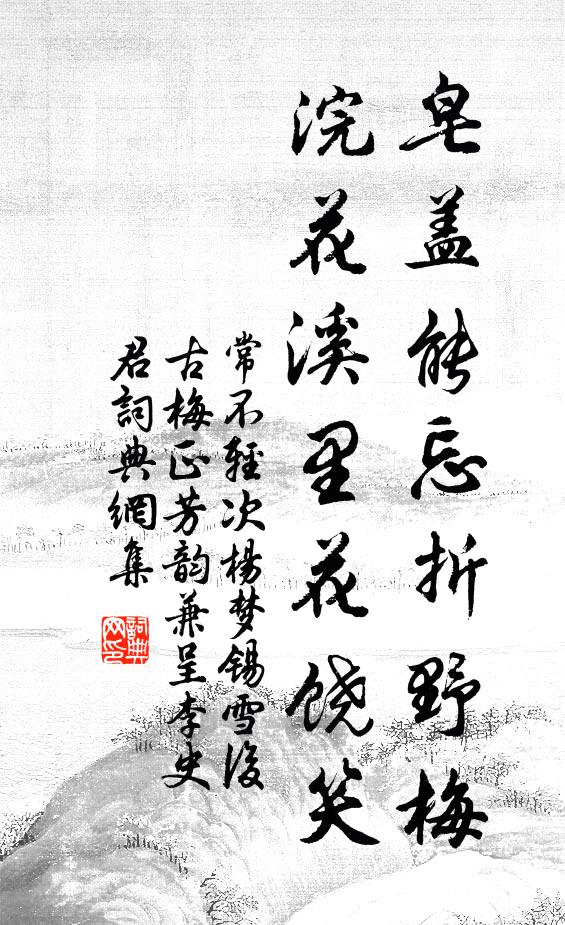 皂盖能忘折野梅
浣花溪里花饶笑
常不轻次杨梦锡雪後
古梅正芳韵兼呈李史
君詞典網集
詞典
网印